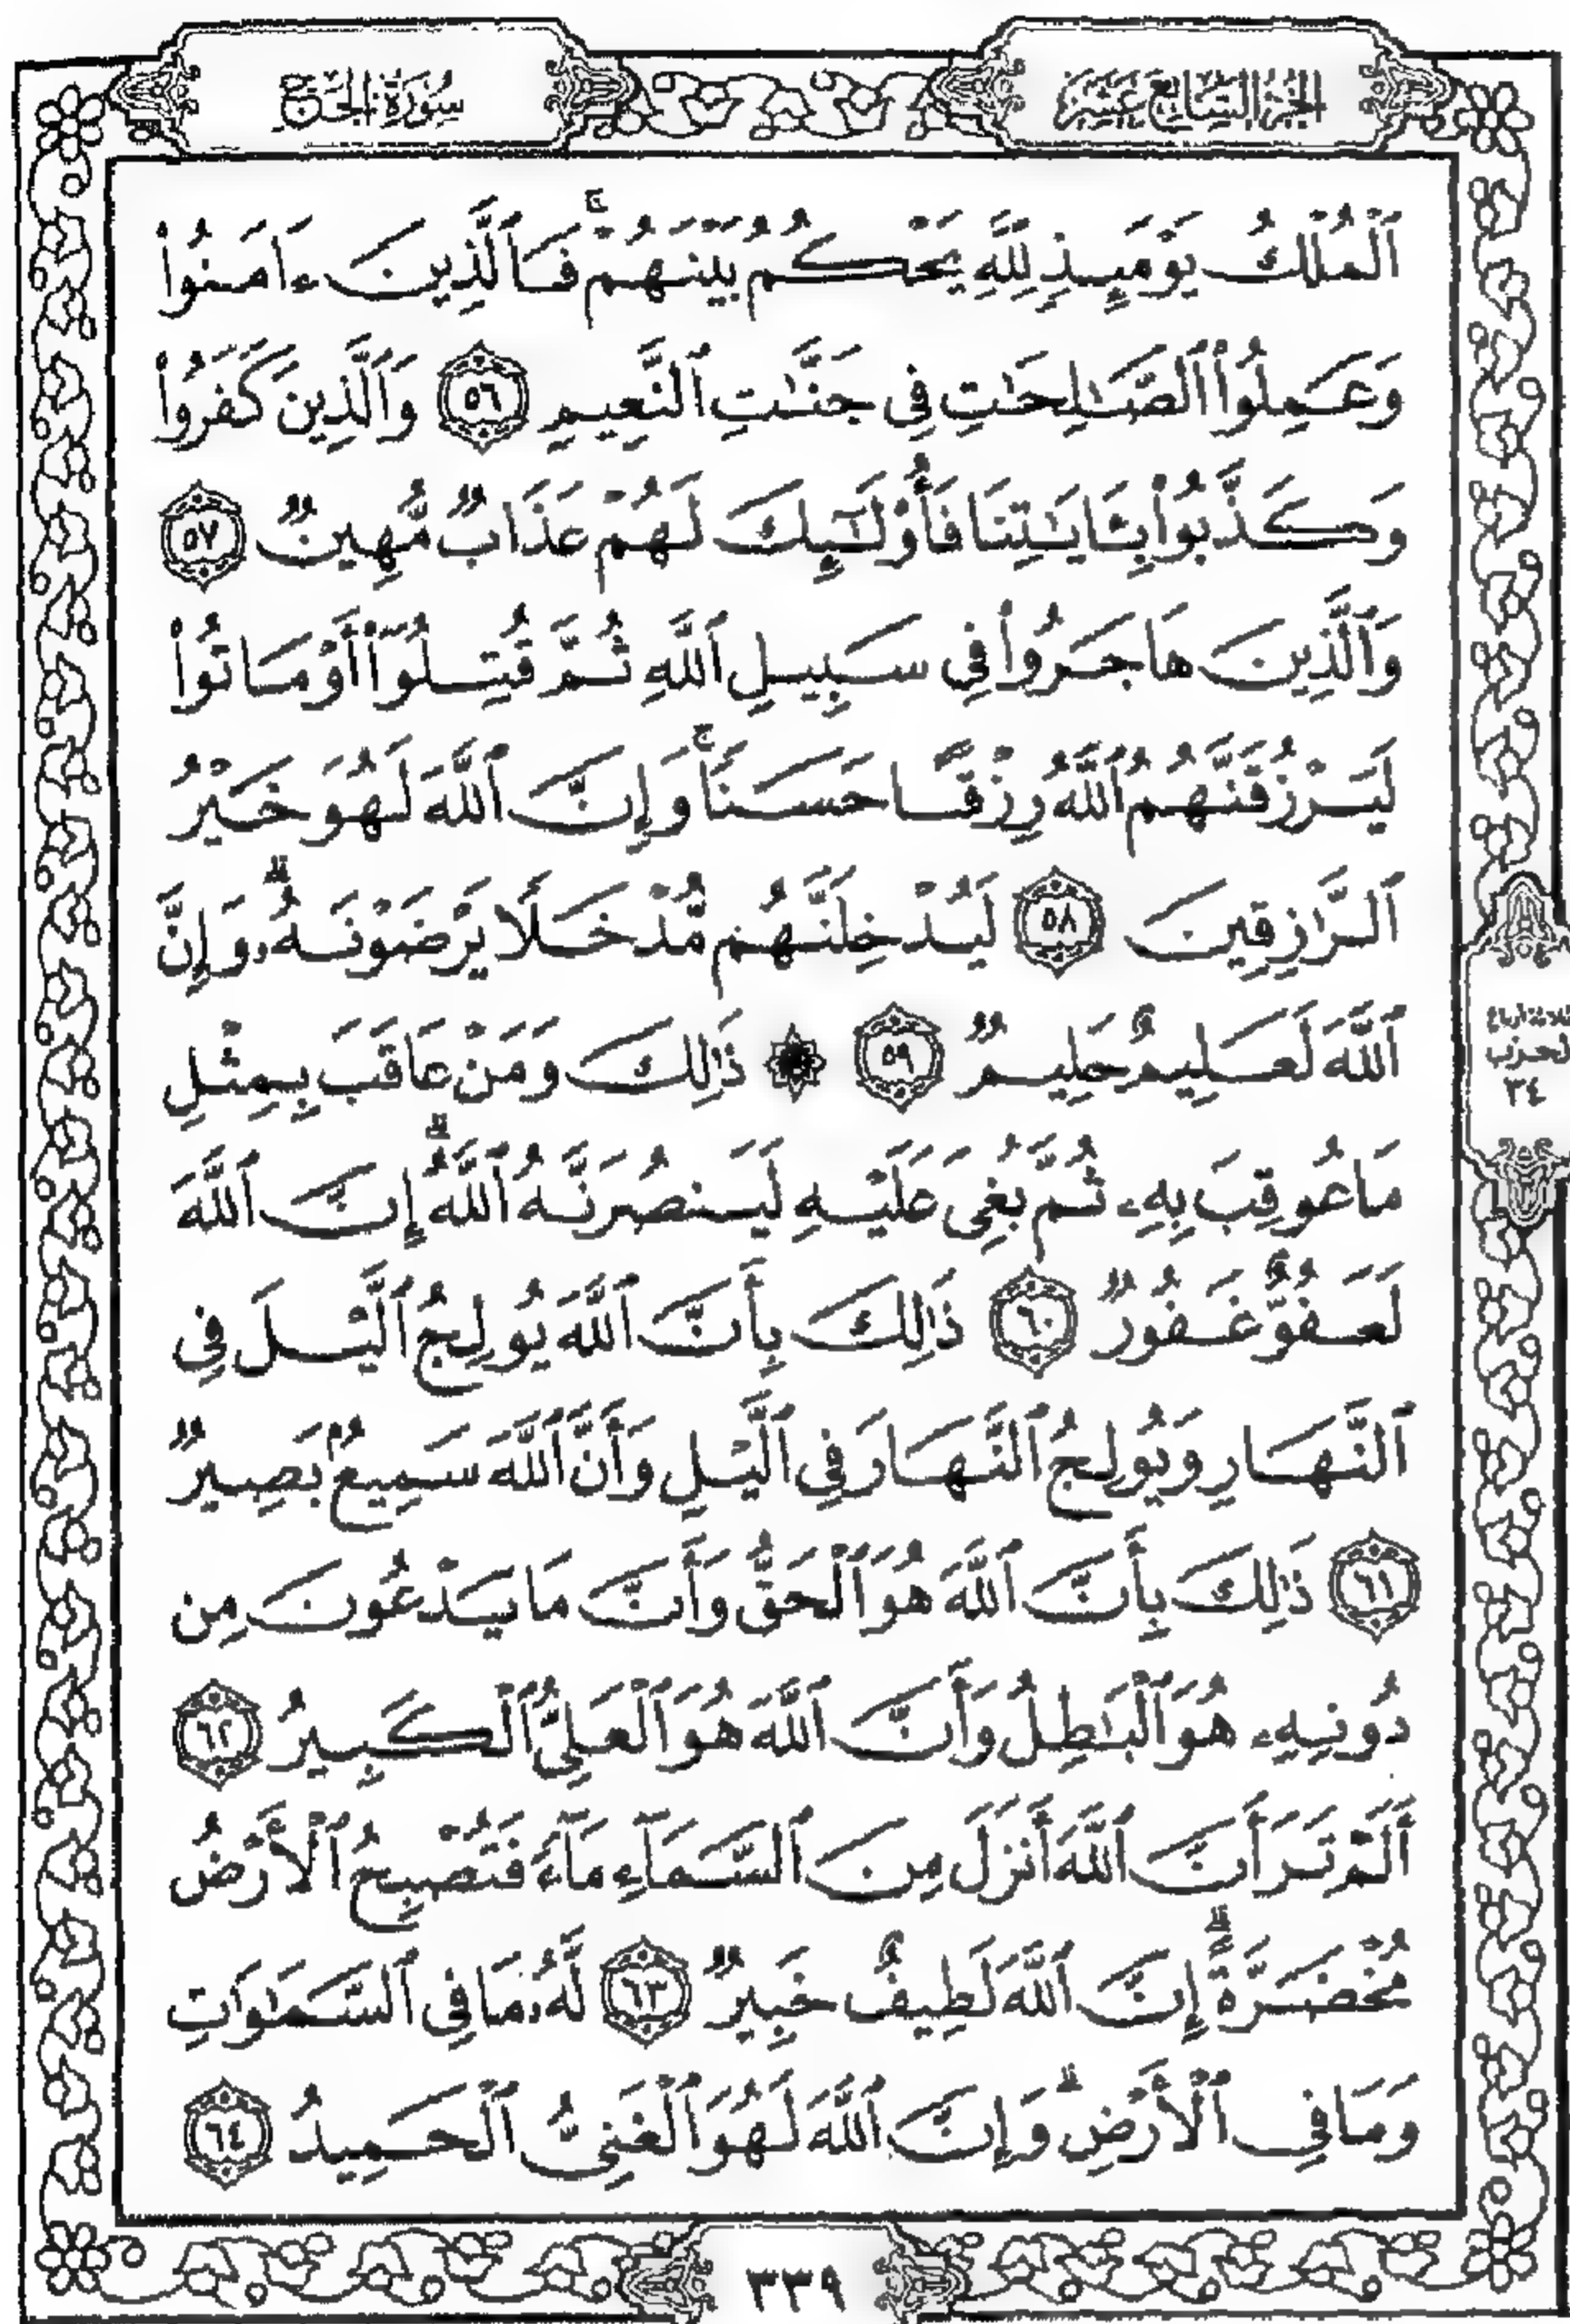 الجزء السابع عشر
سورة الحج
ٱلْمُلْكُ يَوْمَئِذٍ لِّلَّهِ يَحْكُمُ بَيْنَهُمْ ۚ فَٱلَّذِينَ ءَامَنُوا۟
وَعَمِلُوا۟ ٱلصَّـٰلِحَـٰتِ فِى جَنَّـٰتِ ٱلنَّعِيمِ ٥٦ وَٱلَّذِينَ كَفَرُوا۟
وَكَذَّبُوا۟ بِـَٔايَـٰتِنَا فَأُو۟لَـٰٓئِكَ لَهُمْ عَذَابٌ مُّهِينٌ ٥٧
وَٱلَّذِينَ هَاجَرُوا۟ فِى سَبِيلِ ٱللَّهِ ثُمَّ قُتِلُوٓا۟ أَوْ مَاتُوا۟
لَيَرْزُقَنَّهُمُ ٱللَّهُ رِزْقًا حَسَنًا ۚ وَإِنَّ ٱللَّهَ لَهُوَ خَيْرُ
ٱلرَّٰزِقِينَ ٥٨ لَيُدْخِلَنَّهُم مُّدْخَلًا يَرْضَوْنَهُۥ ۗ وَإِنَّ
ٱللَّهَ لَعَلِيمٌ حَلِيمٌ ٥٩ ۞ ذَٰلِكَ وَمَنْ عَاقَبَ بِمِثْلِ
ثلاثة أرباع
الحزب
٣٤
مَا عُوقِبَ بِهِۦ ثُمَّ بُغِىَ عَلَيْهِ لَيَنصُرَنَّهُ ٱللَّهُ ۗ إِنَّ ٱللَّهَ
لَعَفُوٌّ غَفُورٌ ٦٠ ذَٰلِكَ بِأَنَّ ٱللَّهَ يُولِجُ ٱلَّيْلَ فِى
ٱلنَّهَارِ وَيُولِجُ ٱلنَّهَارَ فِى ٱلَّيْلِ وَأَنَّ ٱللَّهَ سَمِيعٌۢ بَصِيرٌ
٦١ ذَٰلِكَ بِأَنَّ ٱللَّهَ هُوَ ٱلْحَقُّ وَأَنَّ مَا يَدْعُونَ مِن
دُونِهِۦ هُوَ ٱلْبَـٰطِلُ وَأَنَّ ٱللَّهَ هُوَ ٱلْعَلِىُّ ٱلْكَبِيرُ ٦٢
أَلَمْ تَرَ أَنَّ ٱللَّهَ أَنزَلَ مِنَ ٱلسَّمَآءِ مَآءً فَتُصْبِحُ ٱلْأَرْضُ
مُخْضَرَّةً ۗ إِنَّ ٱللَّهَ لَطِيفٌ خَبِيرٌ ٦٣ لَّهُۥ مَا فِى ٱلسَّمَـٰوَٰتِ
وَمَا فِى ٱلْأَرْضِ ۗ وَإِنَّ ٱللَّهَ لَهُوَ ٱلْغَنِىُّ ٱلْحَمِيدُ ٦٤
٣٣٩